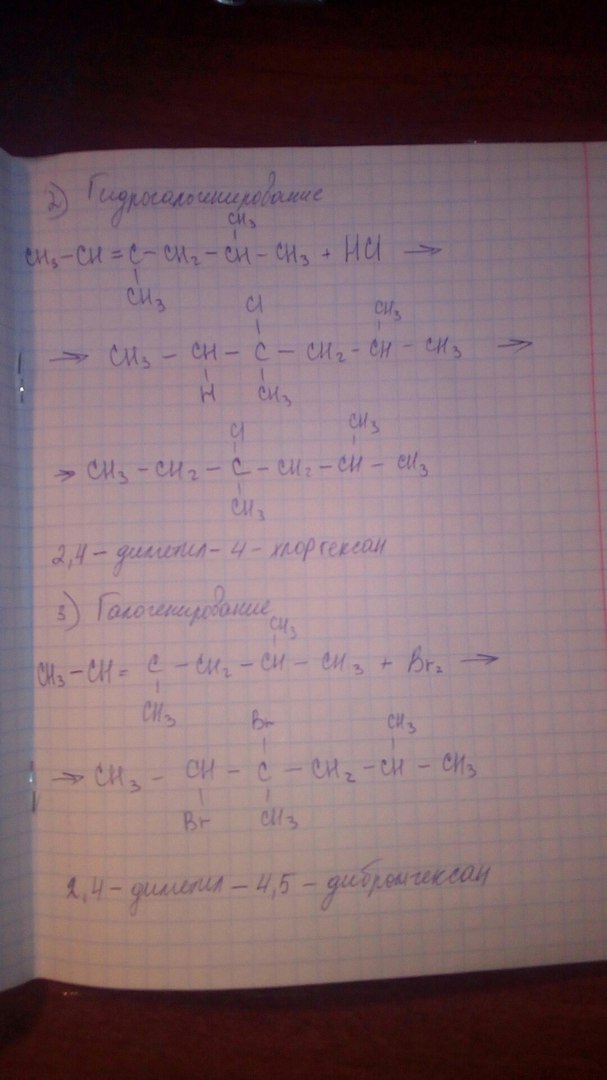 2) Гидрогалогенирование
CH₃
CH₃-CH=C-CH₂-CH-CH₃ + HCl →
CH₃
Cl CH₃
→ CH₃ - CH - C - CH₂ - CH - CH₃ →
H CH₃
Cl CH₃
→ CH₃ - CH₂ - C - CH₂ - CH - CH₃
CH₃
2,4 - диметил - 4 - хлоргексан
3) Галогенирование
CH₃
CH₃-CH= C - CH₂ - CH - CH₃ + Br₂ →
CH₃
Br CH₃
→ CH₃ - CH - C - CH₂ - CH - CH₃
Br CH₃
2,4 - диметил - 4,5 - дибромгексан